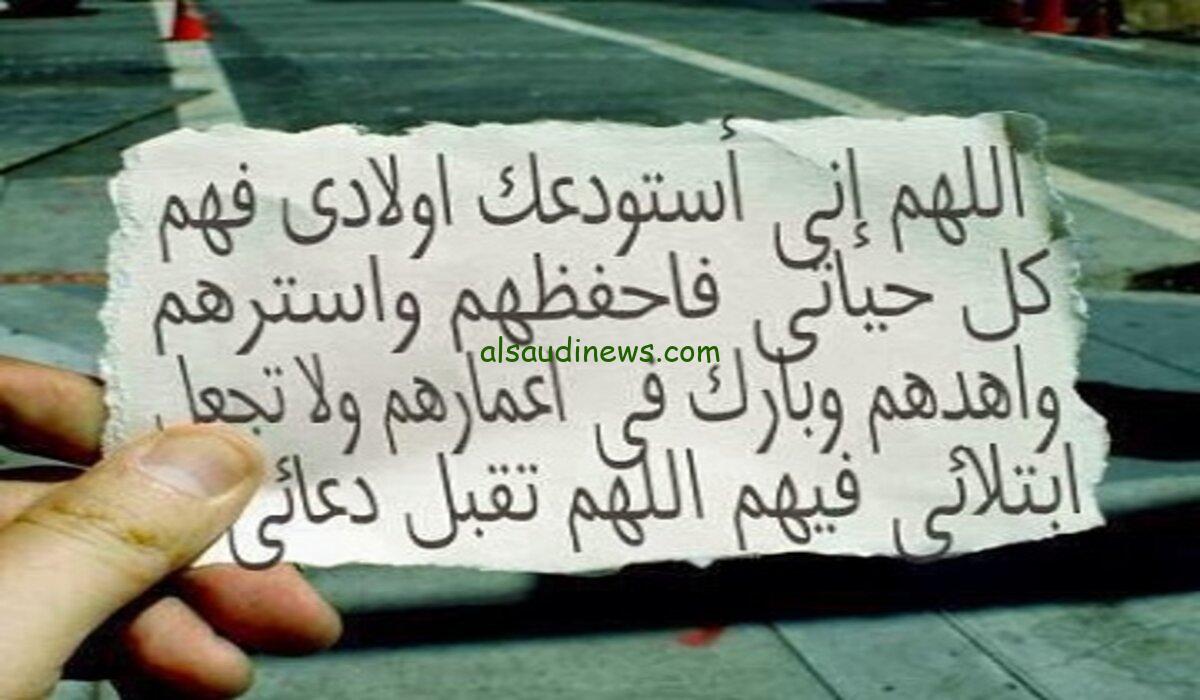 اللهم إني أستودعك اولادى فهم
كل حياتى فاحفظهم واسترهم
alsaudinews.com
واهدهم وبارك فى اعمارهم ولا تجعل
ابتلائى فيهم اللهم تقبل دعائى